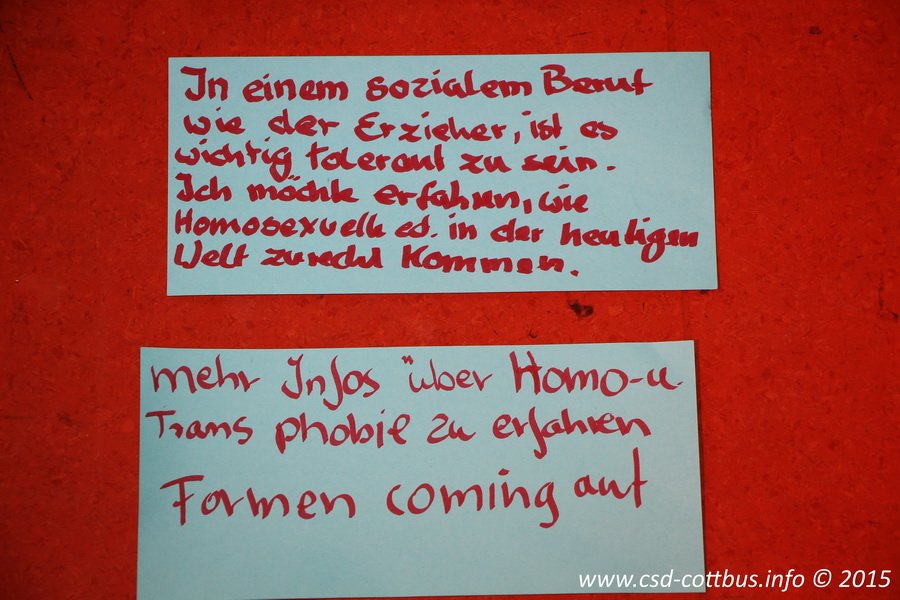 In einem sozialem Beruf
wie der Erzieher, ist es
wichtig tolerant zu sein.
Ich möchte erfahren, wie
Homosexuelle ed. in der heutigen
Welt zurecht kommen.
mehr Infos über Homo-u.
Trans phobie zu erfahren
Formen coming auf
www.csd-cottbus.info © 2015